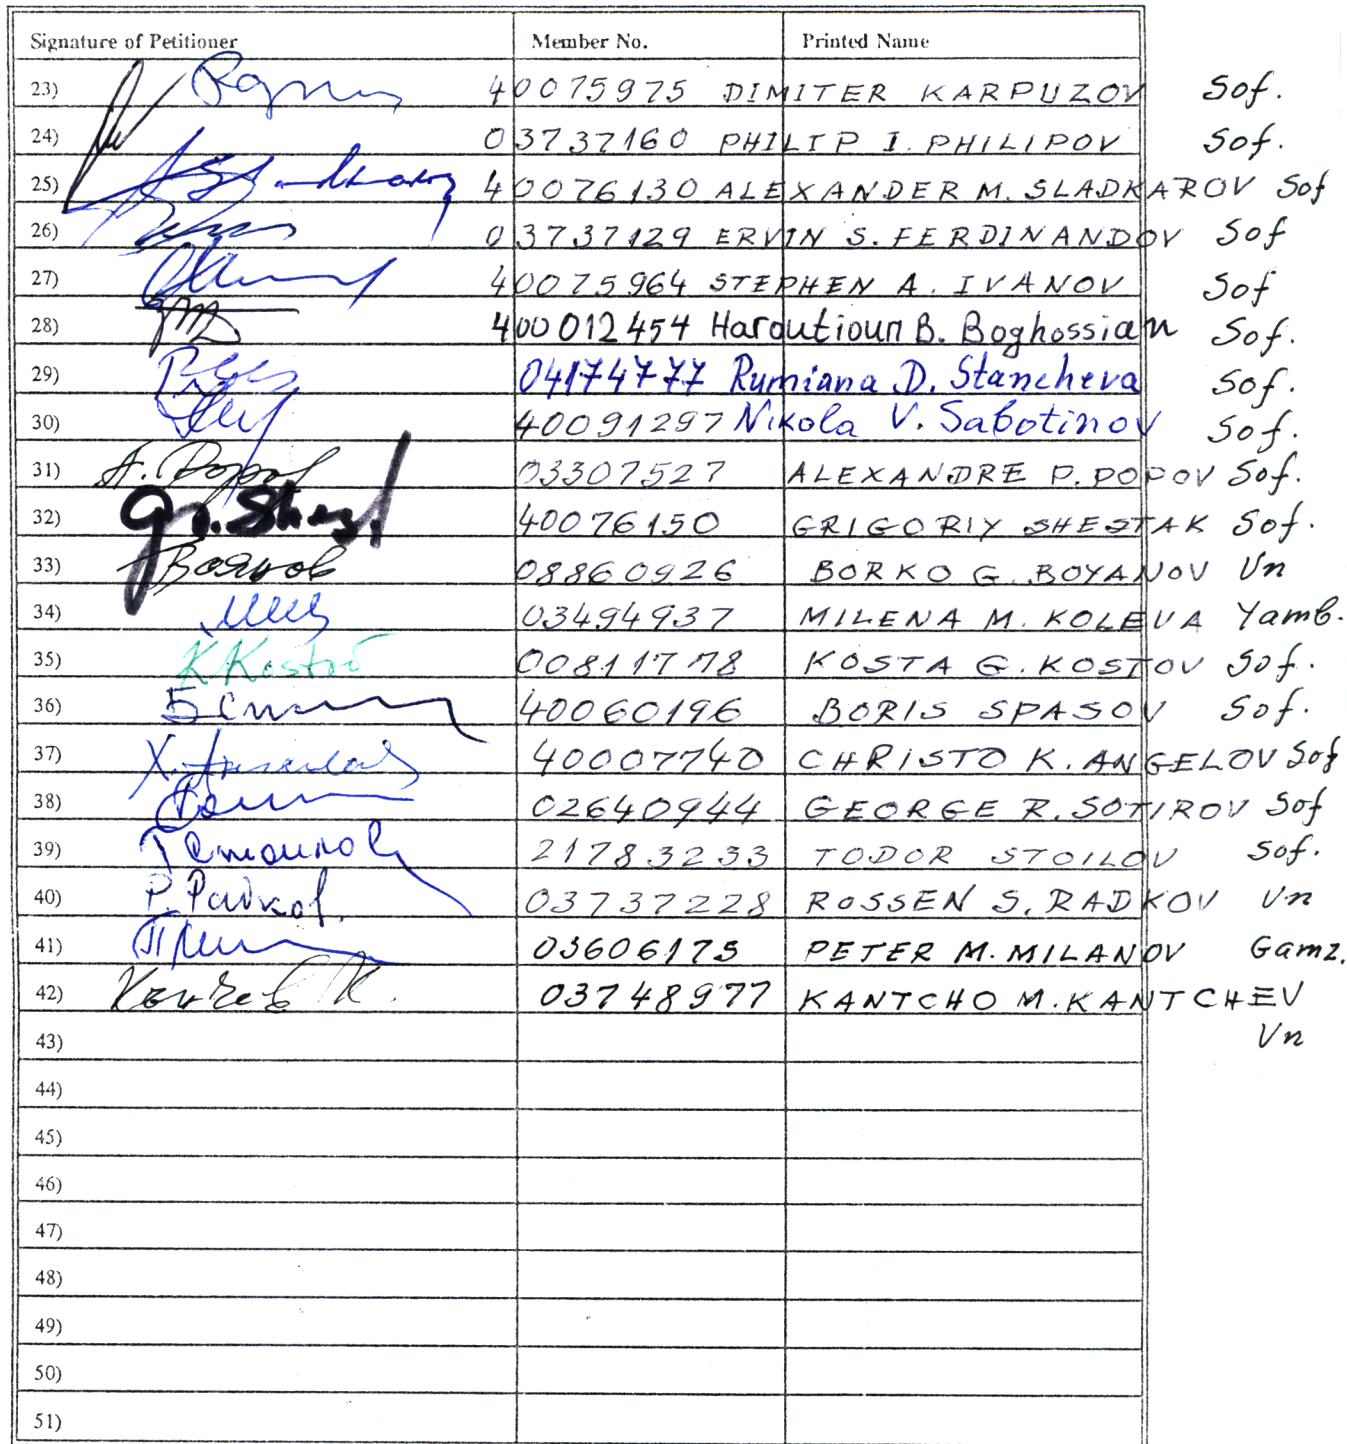 Signature of Petitioner Member No. Printed Name
23) 40075975 DIMITER KARPUZOV Sof.
24) 03737160 PHILIP I. PHILIPOV Sof.
25) 40076130 ALEXANDER M. SLADKAROV Sof
26) 03737129 ERVIN S. FERDINANDOV Sof
27) 40075964 STEPHEN A. IVANOV Sof
28) 400012454 Haroutioun B. Boghossian Sof.
29) 04174777 Rumiana D. Stancheva Sof.
30) 40091297 Nikola V. Sabotinov Sof.
31) 03307527 ALEXANDRE P. POPOV Sof.
32) 40076150 GRIGORIY SHESTAK Sof.
33) Боянов 08860926 BORKO G. BOYANOV Vn
34) 03494937 MILENA M. KOLEVA Yamb.
35) K Kostov 00811778 KOSTA G. KOSTOV Sof.
36) 40060196 BORIS SPASOV Sof.
37) 40007740 CHRISTO K. ANGELOV Sof
38) 02640944 GEORGE R. SOTIROV Sof
39) 21783233 TODOR STOILOV Sof.
40) Р. Радков. 03737228 ROSSEN S. RADKOV Vn
41) 03606175 PETER M. MILANOV Gamz.
42) Кънчев К. 03748977 KANTCHO M. KANTCHEV
43) Vn
44)
45)
46)
47)
48)
49)
50)
51)